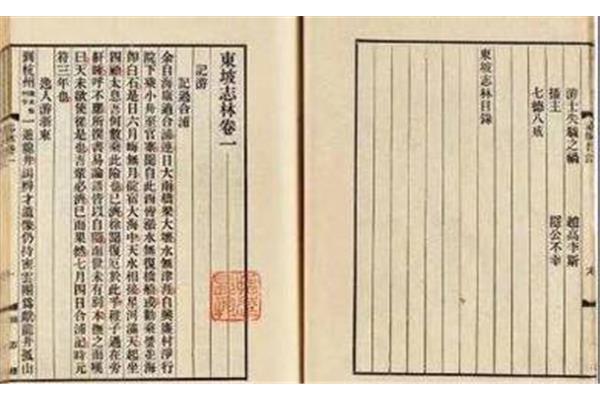 游士失職之禍　趙高李斯
攝主　隱公不幸
七德八戒
東坡志林目錄
東坡志林卷一
記游
記過合浦
余自海康適合浦連日大雨橋梁大壞水無津涯自興廉村淨行
院下乘小舟至官寨聞自此西皆漲水無復橋船或勸乘蜑並海
卽白石是日六月晦無月碇宿大海中天水相接星河滿天起坐
四顧太息吾何數乘此險也已濟徐聞復厄於此乎稚子過在旁
鼾睡呼不應所撰書易論語皆以自隨而世未有別本撫之而嘆
曰天未欲使從是也吾輩必濟已而果然七月四日合浦記時元
符三年也
逸人游浙東
到杭州一遊龍井謁辨才遺像仍持密雲團爲獻龍井孤山